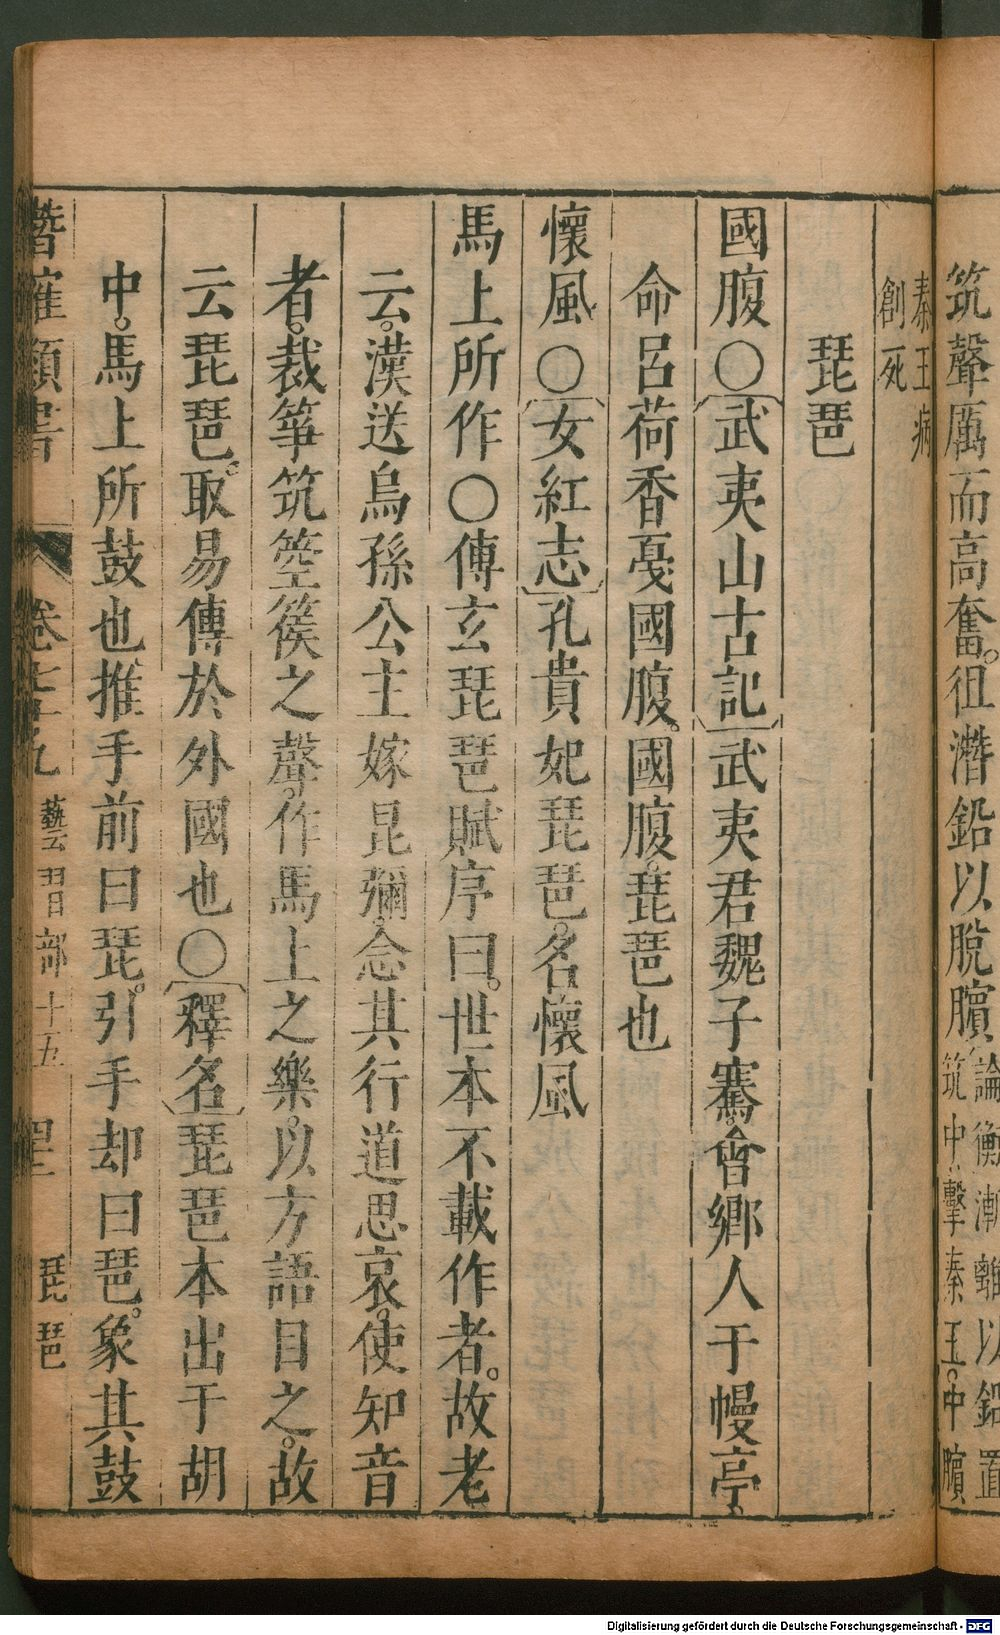 筑聲厲而高奮。徂潛鉛以脫臏論衡漸離以鉛置
筑中擊秦王。中臏
秦王病
創死
琵琶
國腹○武夷山古記武夷君魏子騫會鄉人于幔亭。
命呂荷香戞國腹。國腹。琵琶也
懷風○女紅志孔貴妃琵琶。名懷風
馬上所作○傅玄琵琶賦序曰。世本不載作者。故老
云。漢送烏孫公主嫁昆彌。念其行道思哀。使知音
者。裁箏筑箜篌之聲。作馬上之樂。以方語目之。故
云琵琶。取易傳於外國也○釋名琵琶本出于胡
中。馬上所鼓也推手前曰琵。引手却曰琶。象其鼓
潛確類書 卷七十九 藝習部十五 琵琶
Digitalisierung gefördert durch die Deutsche Forschungsgemeinschaft - DFG